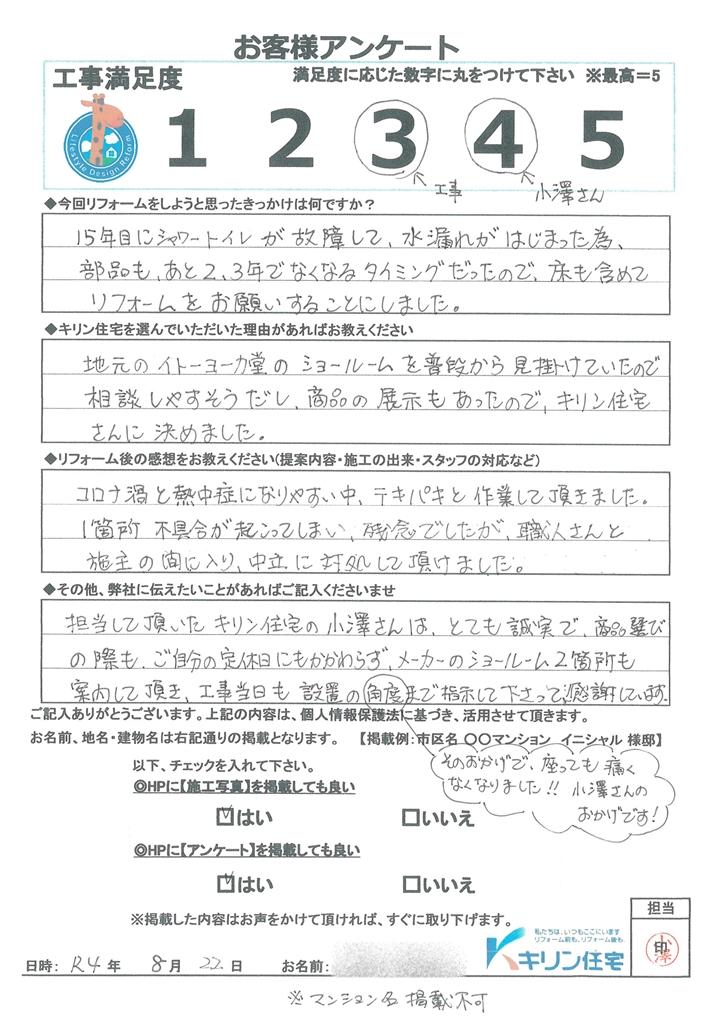 お客様アンケート
工事満足度
満足度に応じた数字に丸をつけて下さい ※最高=5
Lifestyle Design Reform
1 2 3 4 5
工事
小澤さん
◆今回リフォームをしようと思ったきっかけは何ですか?
15年目にシャワートイレが故障して、水漏れがはじまった為、
部品も、あと2、3年でなくなるタイミングだったので、床も含めて
リフォームをお願いすることにしました。
◆キリン住宅を選んでいただいた理由があればお教えください
地元のイトーヨーカ堂のショールームを普段から見掛けていたので
相談しやすそうだし、商品の展示もあったので、キリン住宅
さんに決めました。
◆リフォーム後の感想をお教えください(提案内容・施工の出来・スタッフの対応など)
コロナ渦と熱中症になりやすい中、テキパキと作業して頂きました。
1箇所 不具合が起こってしまい、残念でしたが、職人さんと
施主の間に入り、中立に対処して頂けました。
◆その他、弊社に伝えたいことがあればご記入くださいませ
担当して頂いたキリン住宅の小澤さんは、とても誠実で、商品選び
の際も、ご自分の定休日にもかかわらず、メーカーのショールーム2箇所も
案内して頂き、工事当日も設置の角度まで指示して下さって、感謝しています。
ご記入ありがとうございます。上記の内容は、個人情報保護法に基づき、活用させて頂きます。
お名前、地名・建物名は右記通りの掲載となります。 【掲載例:市区名 〇〇マンション イニシャル 様邸】
そのおかげで、座っても痛く
なくなりました!! 小澤さんの
おかげです!
以下、チェックを入れて下さい。
◎HPに【施工写真】を掲載しても良い
☑はい □いいえ
◎HPに【アンケート】を掲載しても良い
☑はい □いいえ
※掲載した内容はお声をかけて頂ければ、すぐに取り下げます。
担当
印
小澤
私たちは、いつもここにいます
リフォーム前も、リフォーム後も。
キリン住宅
日時: R4年 8月 22日 お名前:
※マンション名 掲載不可